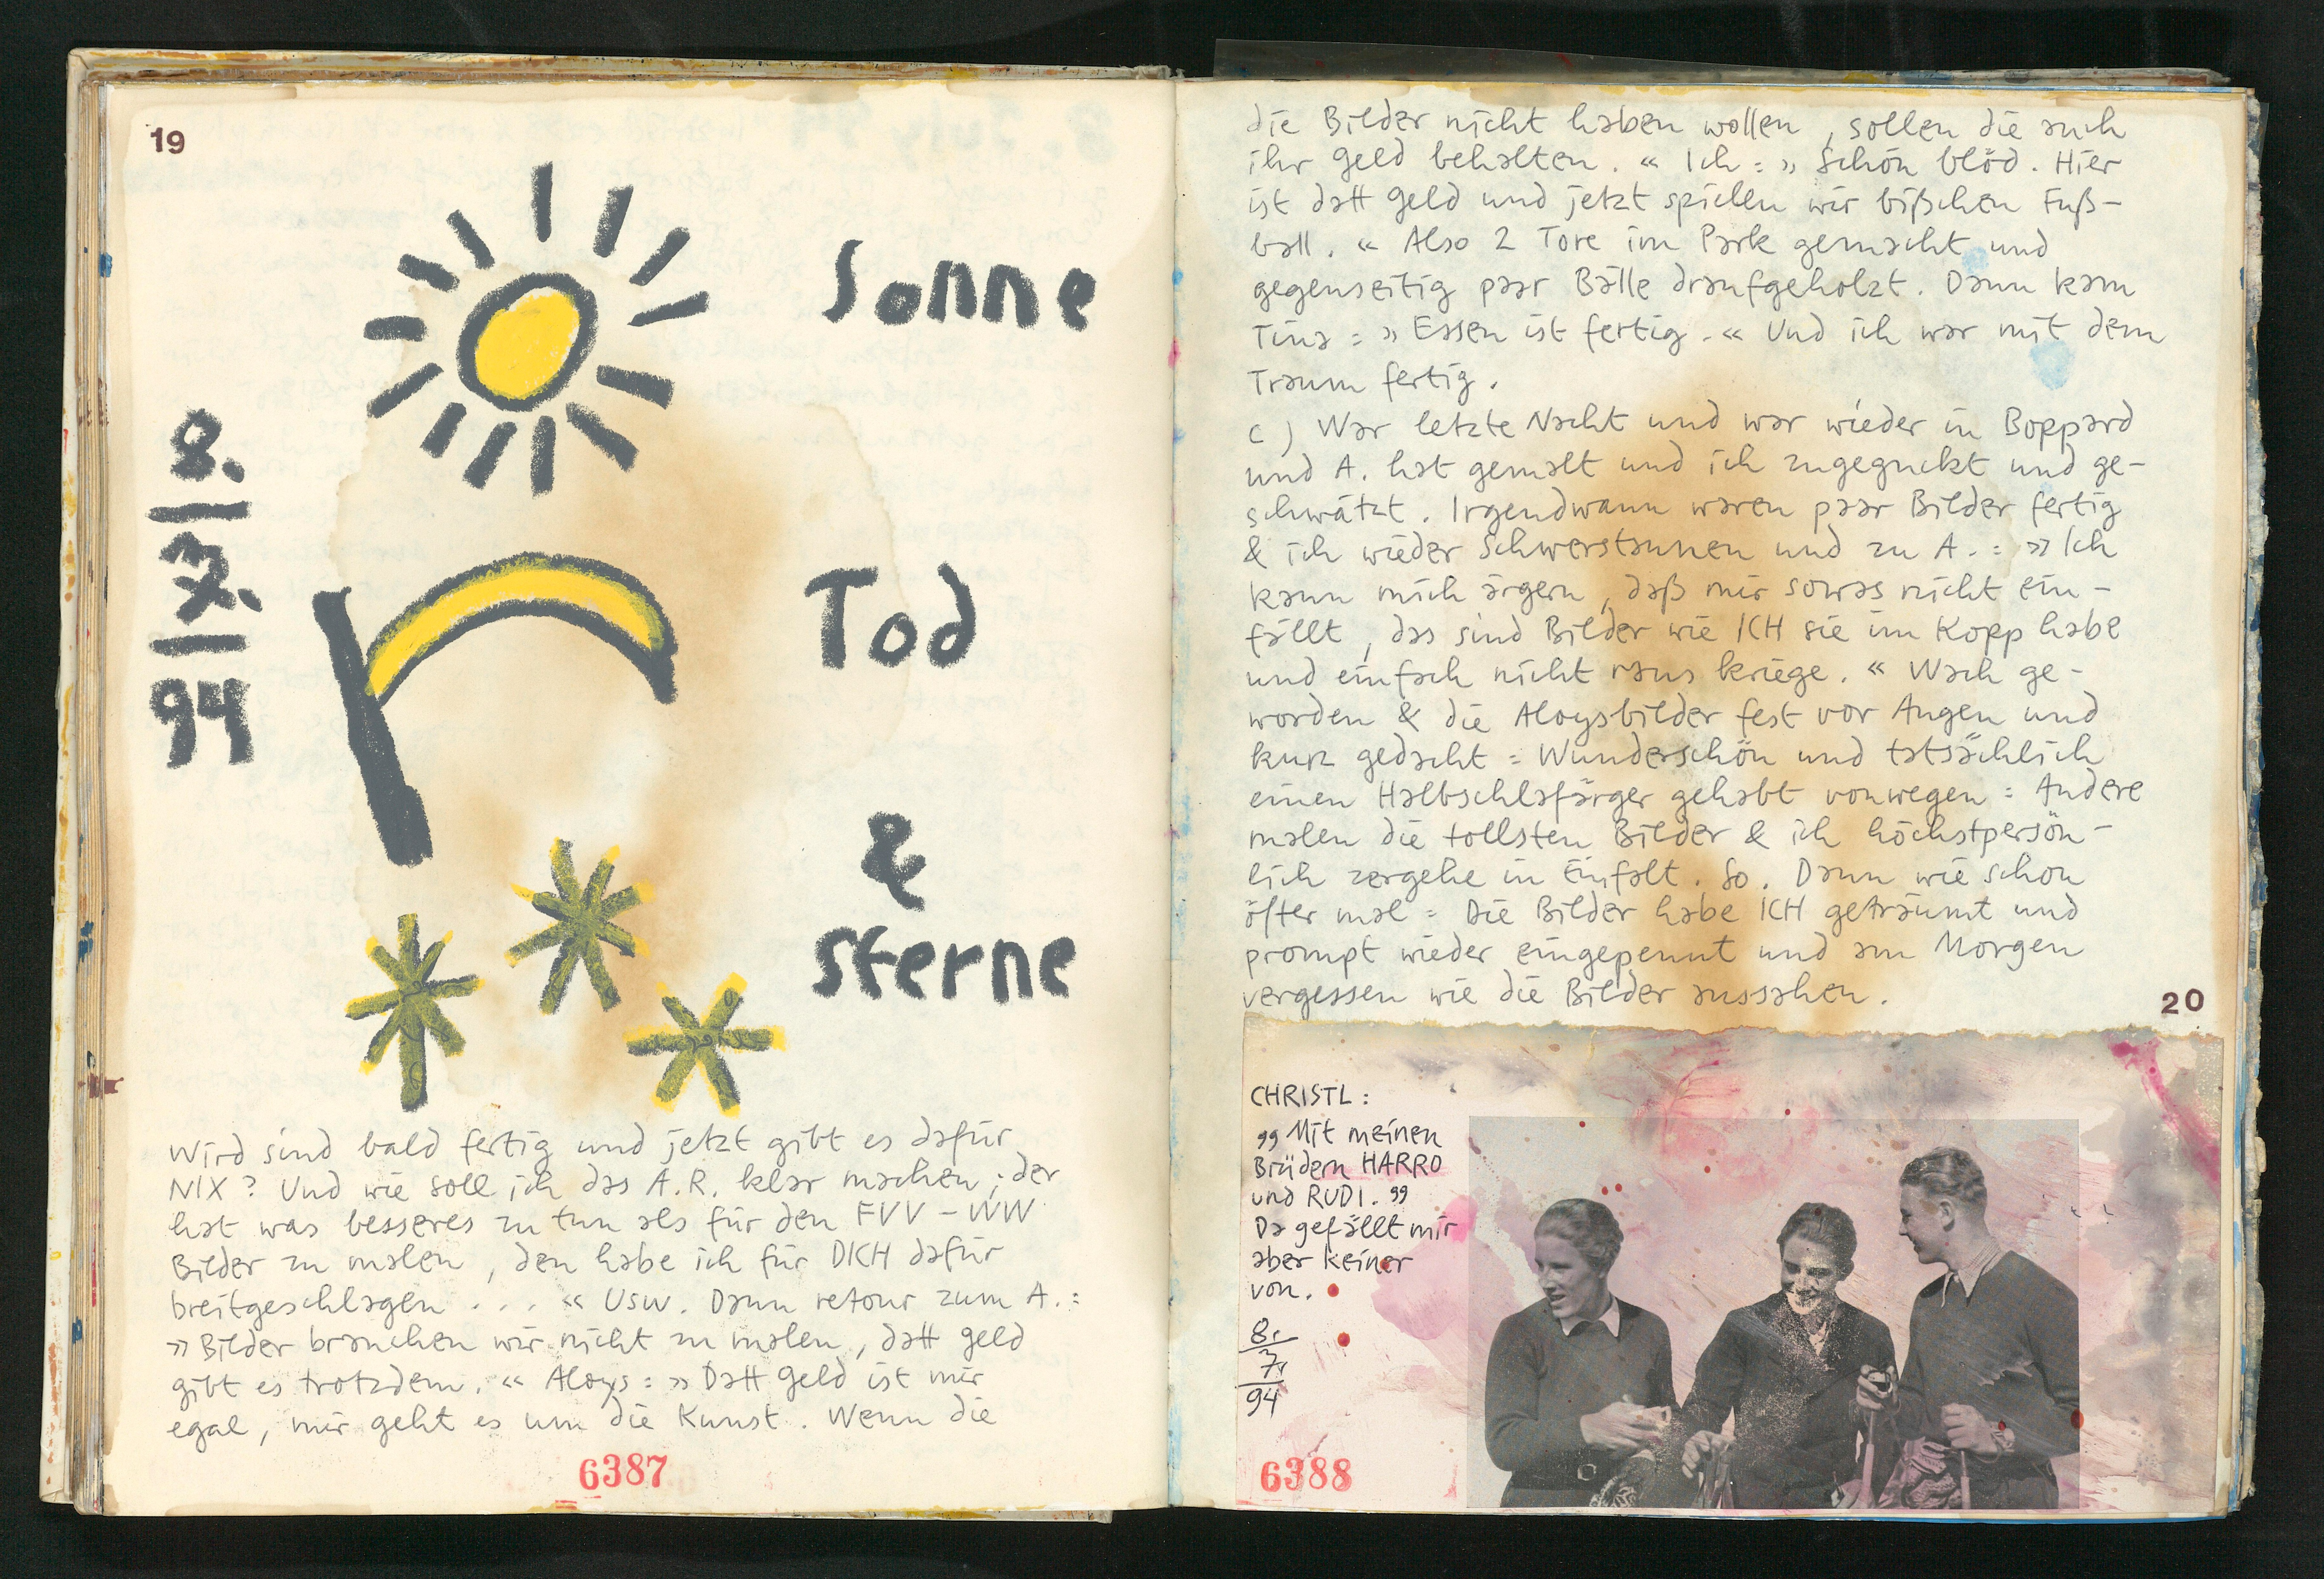 19
Sonne
8.
7.
94
Tod
&
Sterne
Wird sind bald fertig und jetzt gibt es dafür
NIX? Und wie soll ich das A.R. klar machen, der
hat was besseres zu tun als für den FVV-WW
Bilder zu malen, den habe ich für DICH dafür
breitgeschlagen . . . « Usw. Dann retour zum A.:
»Bilder brauchen wir nicht zu malen, datt Geld
gibt es trotzdem.« Aloys: »Datt Geld ist mir
egal, mir geht es um die Kunst. Wenn die
6387
die Bilder nicht haben wollen, sollen die auch
ihr Geld behalten.« Ich: »Schön blöd. Hier
ist datt Geld und jetzt spielen wir bißchen Fuß-
ball.« Also 2 Tore im Park gemacht und
gegenseitig paar Bälle draufgeholzt. Dann kam
Tina: »Essen ist fertig.« Und ich war mit dem
Traum fertig.
c) War letzte Nacht und war wieder in Boppard
und A. hat gemalt und ich zugeguckt und ge-
schwätzt. Irgendwann waren paar Bilder fertig
& ich wieder Schwerstaunen und zu A.: »Ich
kann mich ärgern, daß mir sowas nicht ein-
fällt, das sind Bilder wie ICH sie im Kopp habe
und einfach nicht raus kriege.« Wach ge-
worden & die Aloysbilder fest vor Augen und
kurz gedacht: Wunderschön und tatsächlich
einen Halbschlafärger gehabt vonwegen: Andere
malen die tollsten Bilder & ich höchstpersön-
lich zergehe in Einfalt. So. Dann wie schon
öfter mal: Die Bilder habe ICH geträumt und
prompt wieder eingepennt und am Morgen
vergessen wie die Bilder aussahen.
20
CHRISTL:
„Mit meinen
Brüdern HARRO
und RUDI."
Da gefällt mir
aber keiner
von.
8.
7.
94
6388